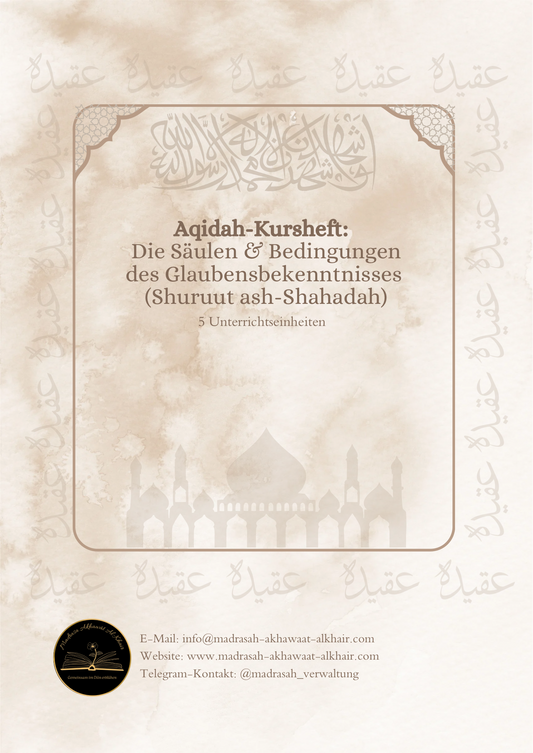 عقيدة عقيدة عقيدة عقيدة عقيدة
أشهد أن لا إله إلا الله
وأشهد أن محمدا رسول الله
Aqidah-Kursheft:
Die Säulen & Bedingungen
des Glaubensbekenntnisses
(Shuruut ash-Shahadah)
5 Unterrichtseinheiten
عقيدة
عقيدة
عقيدة
عقيدة
عقيدة
عقيدة
عقيدة
عقيدة
عقيدة
عقيدة
عقيدة عقيدة عقيدة عقيدة عقيدة
Madrasah Akhawaat Al-Khair
E-Mail: info@madrasah-akhawaat-alkhair.com
Website: www.madrasah-akhawaat-alkhair.com
Telegram-Kontakt: @madrasah_verwaltung